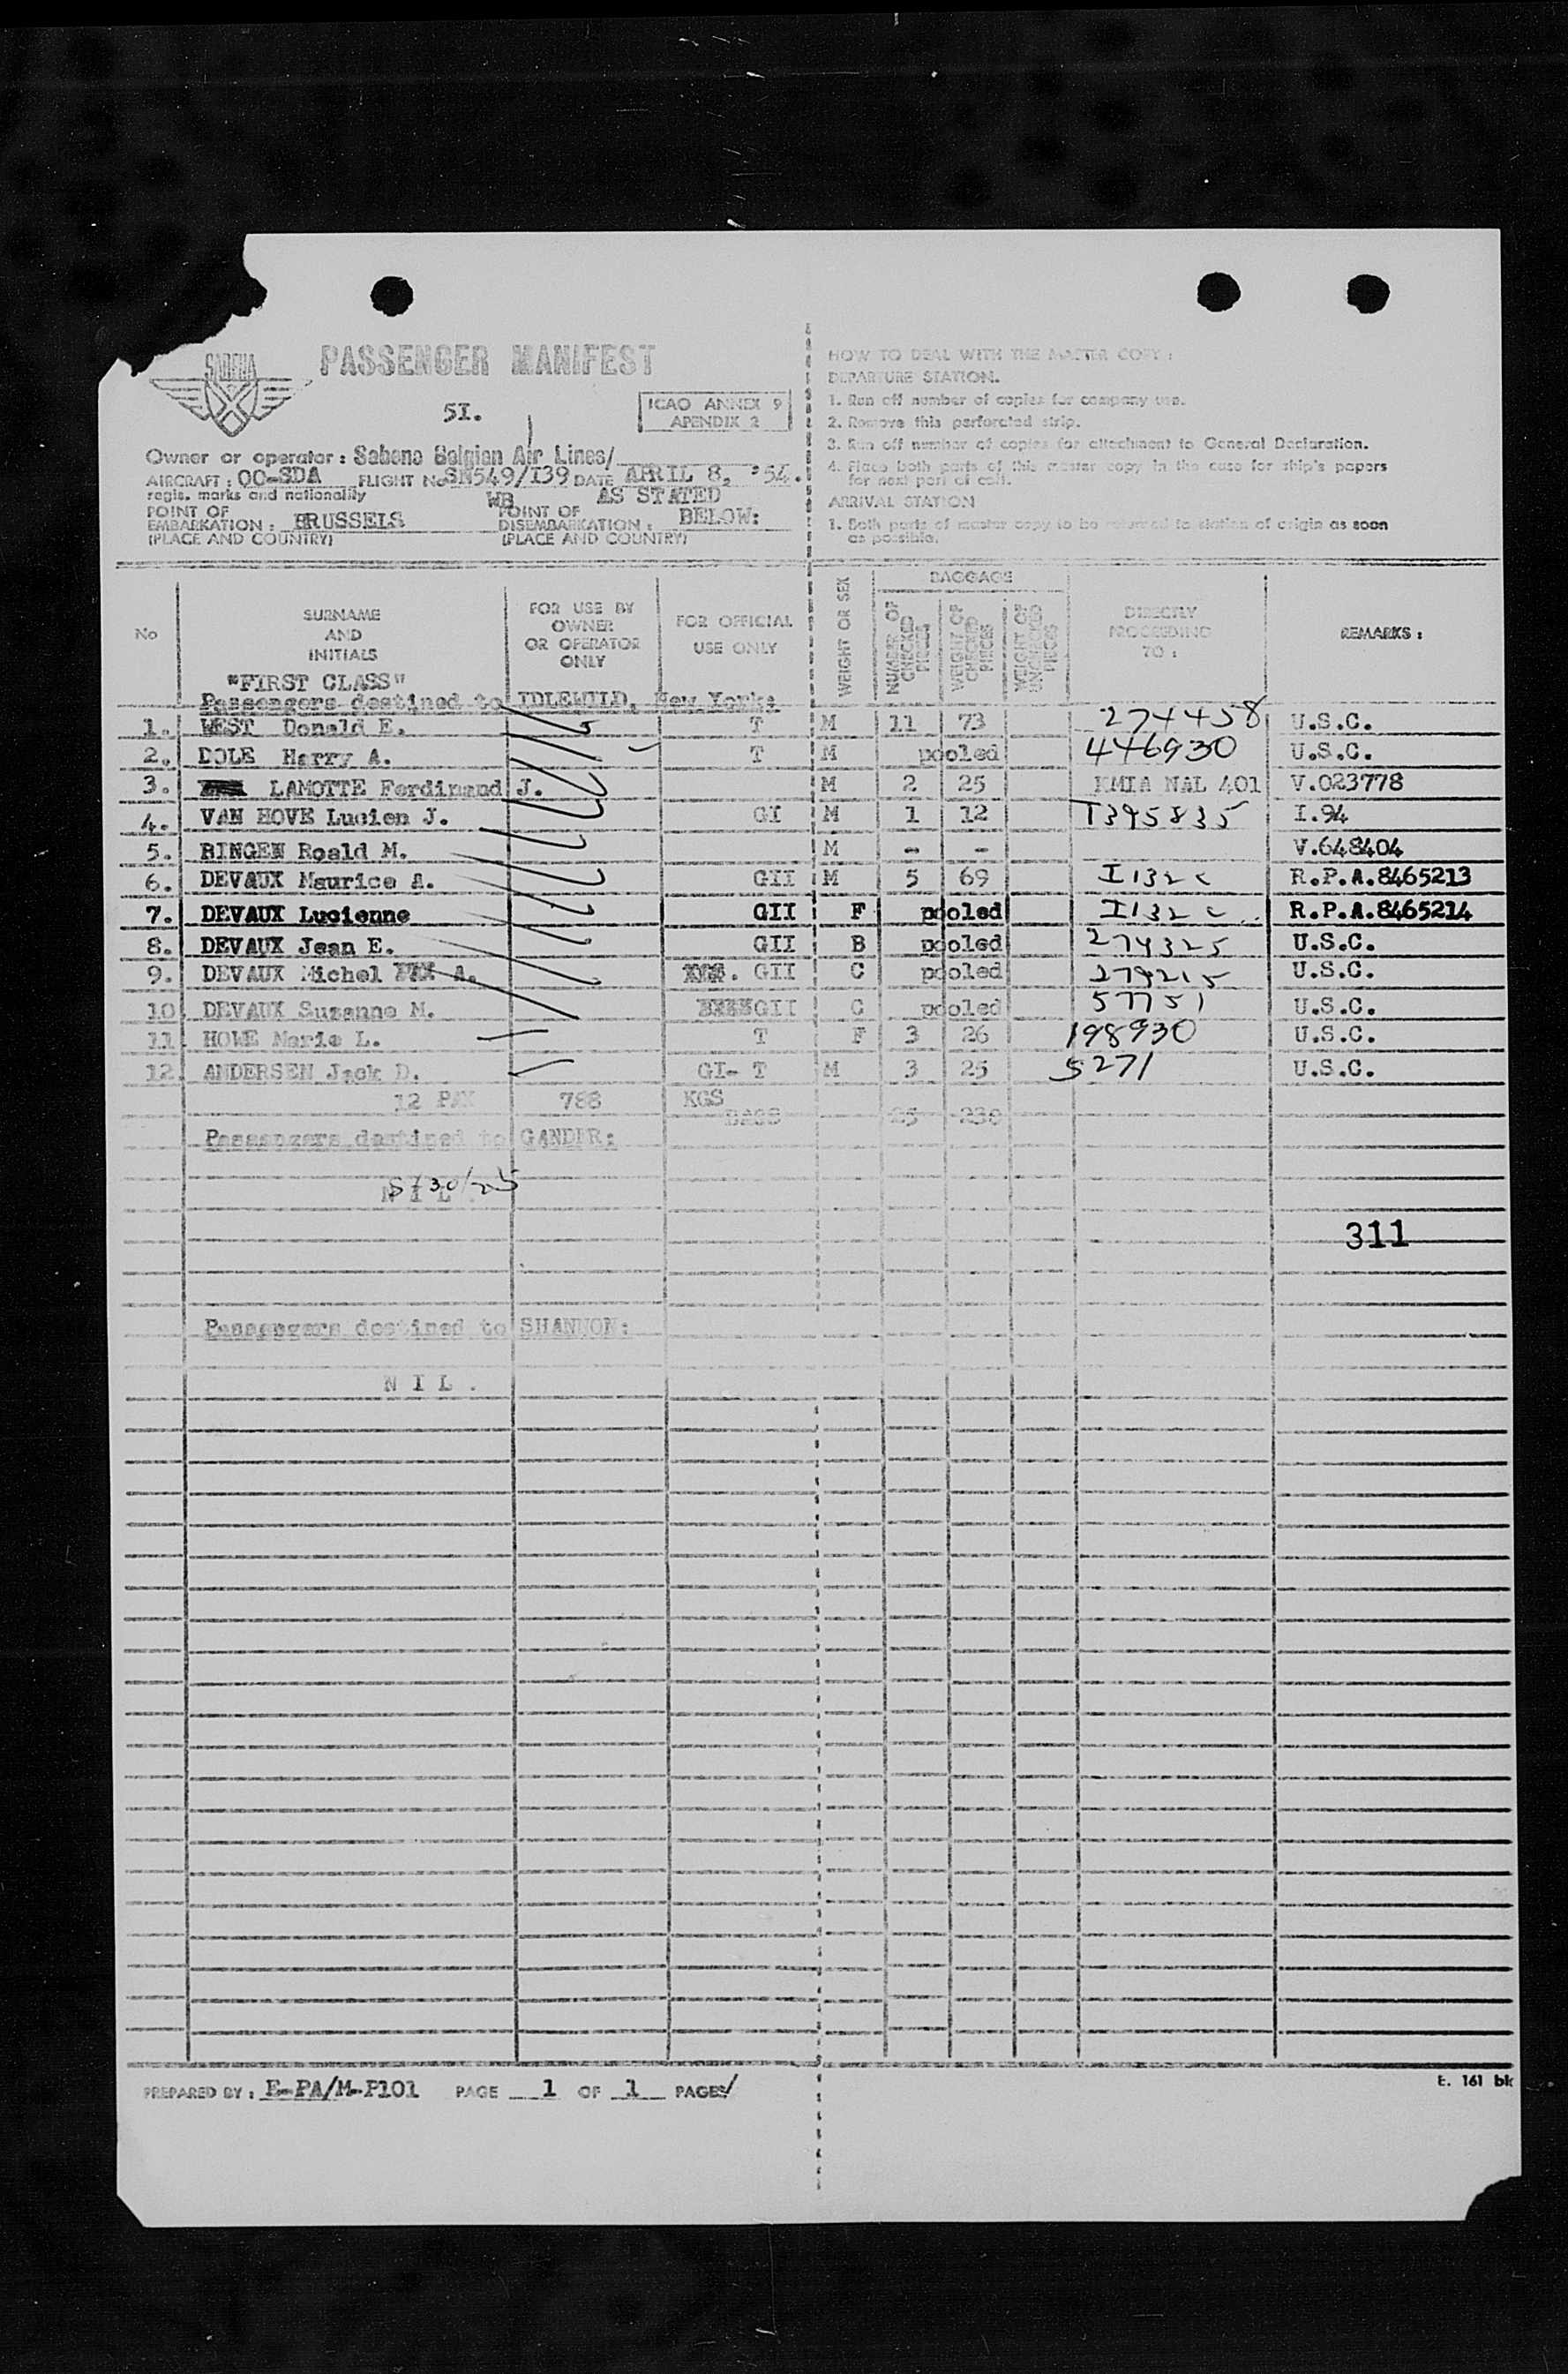 SABENA
PASSENGER MANIFEST
5I.
ICAO ANNEX 9
APENDIX 2
Owner or operator : Sabena Belgian Air Lines/
AIRCRAFT : OO-SDA FLIGHT No SN549/I39 DATE APRIL 8, '54.
regis. marks and nationality WB AS STATED
POINT OF EMBARKATION : BRUSSELS POINT OF DISEMBARKATION : BELOW:
(PLACE AND COUNTRY) (PLACE AND COUNTRY)
HOW TO DEAL WITH THE MASTER COPY :
DEPARTURE STATION.
1. Run off number of copies for company use.
2. Remove this perforated strip.
3. Run off number of copies for attachment to General Declaration.
4. Place both parts of this master copy in the case for ship's papers
for next port of call.
ARRIVAL STATION
1. Both parts of master copy to be returned to station of origin as soon
as possible.
No
SURNAME AND INITIALS
FOR USE BY OWNER OR OPERATOR ONLY
FOR OFFICIAL USE ONLY
WEIGHT OR SEX
BAGGAGE
NUMBER OF CHECKED PIECES
WEIGHT OF CHECKED PIECES
WEIGHT OF UNCHECKED PIECES
DIRECTLY PROCEEDING TO :
REMARKS :
"FIRST CLASS"
Passengers destined to IDLEWILD, New York:
1. WEST Donald E. T M 11 73 274458 U.S.C.
2. DOLE Harry A. T M pooled 446930 U.S.C.
3. LAMOTTE Ferdinand J. M 2 25 KMIA NAL 401 V.023778
4. VAN HOVE Lucien J. GI M 1 12 T395835 I.94
5. BINGEN Roald M. M - - V.648404
6. DEVAUX Maurice A. GII M 5 69 I132c R.P.A.8465213
7. DEVAUX Lucienne GII F pooled I132c R.P.A.8465214
8. DEVAUX Jean E. GII B pooled 274325 U.S.C.
9. DEVAUX Michel A. GII C pooled 279215 U.S.C.
10 DEVAUX Suzanne M. GII C pooled 57751 U.S.C.
11. HOWE Marie L. T F 3 26 198930 U.S.C.
12. ANDERSEN Jack D. GI- T M 3 25 5271 U.S.C.
12 PAX 788 KGS
BAGS 25 230
Passengers destined to GANDER:
N I L
311
Passengers destined to SHANNON:
N I L .
PREPARED BY : E-PA/M-P101 PAGE 1 OF 1 PAGES/
E. 161 bk